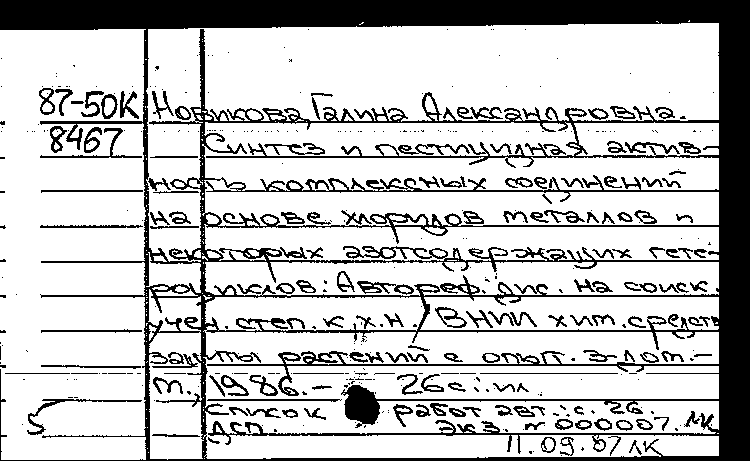 87-50К Новикова, Галина Александровна.
8467 Синтез и пестицидная актив-
ность комплексных соединений
на основе хлоридов металлов и
некоторых азотсодержащих гете-
роциклов: Автореф. дис. на соиск.
учен. степ. к.х.н. / ВНИИ хим. средств
защиты растений с опыт. з-дом.-
М., 1986.- 26с.: ил.
Список работ авт.: с. 26.
ДСП. Экз. N 000007.
11.09.87 ЛК